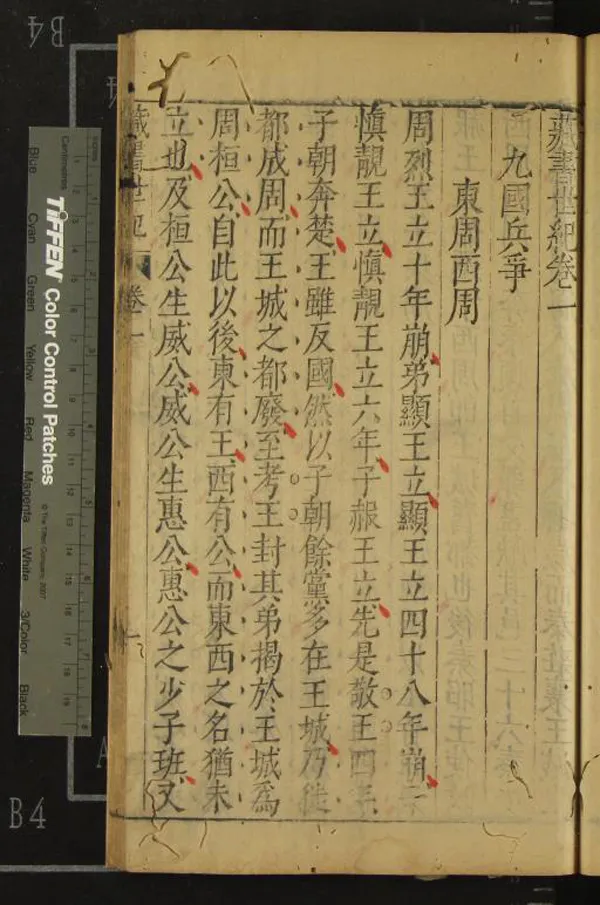 藏書世紀卷一
九國兵爭
東周西周
周烈王立十年崩弟顯王立顯王立四十八年崩子
慎靚王立慎靚王立六年子赧王立先是敬王四年
子朝奔楚王雖反國然以子朝餘黨多在王城乃徙
都成周而王城之都廢至考王封其弟揭於王城為
周桓公自此以後東有王西有公而東西之名猶未
立也及桓公生威公威公生惠公惠公之少子班又
藏書世紀 卷一
TIFFEN Color Control Patches
© The Tiffen Company, 2007
Centimetres
Blue Cyan Green Yellow Red Magenta White 3/Color Black
B4
B4